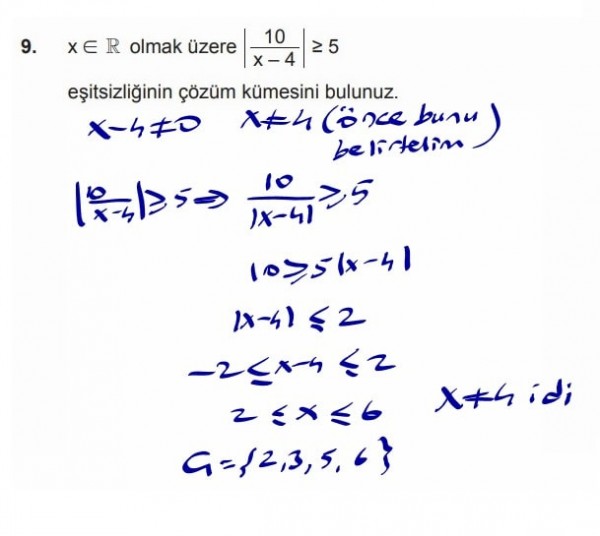 9. x ∈ ℝ olmak üzere |10/(x – 4)| ≥ 5
eşitsizliğinin çözüm kümesini bulunuz.
x-4≠0 x≠4 (önce bunu belirtelim)
|10/(x-4)| ≥ 5 ⇒ 10/|x-4| ≥ 5
10 ≥ 5|x-4|
|x-4| ≤ 2
-2 ≤ x-4 ≤ 2
2 ≤ x ≤ 6 x≠4 idi
Ç={2,3,5,6}